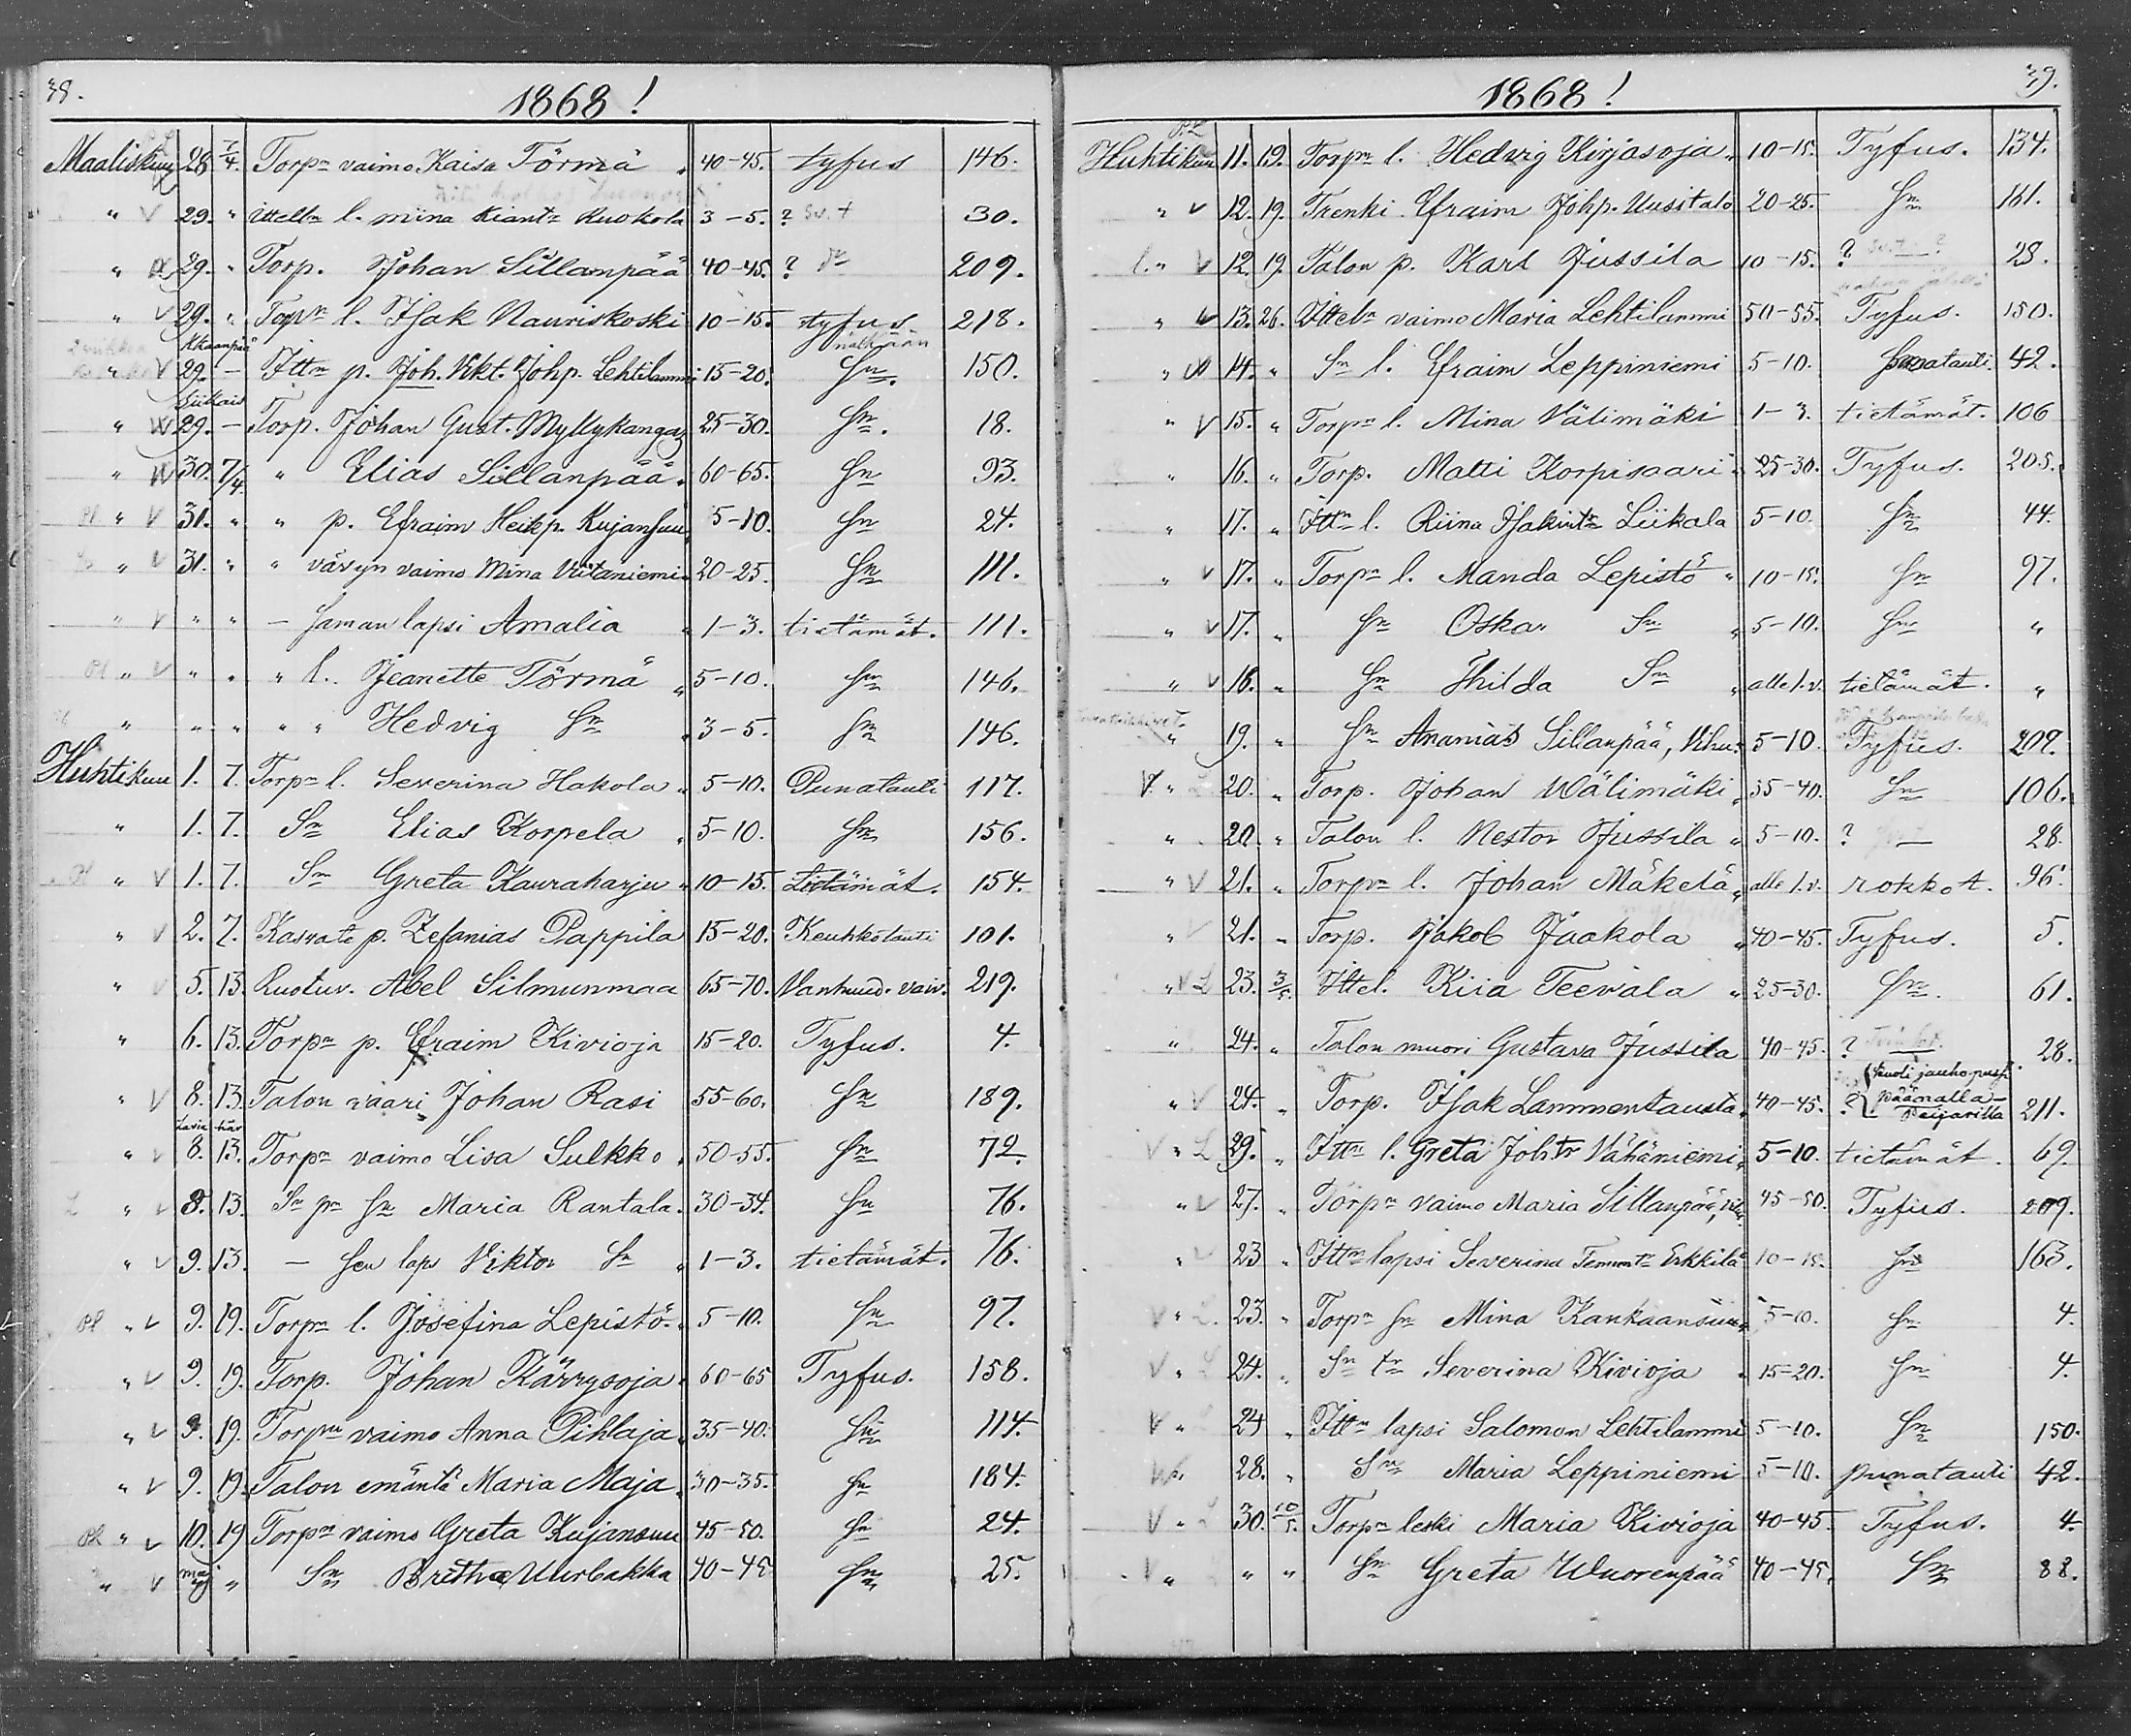 38.
1868!
Maaliskuu 28. 7/4. Torpn vaimo Kaisa Törmä 40-45. tyfus 146.
" V 29. " Ittelln l. miina Kiantr Ruokola 3-5. ? 30.
" 29. " Torp. Johan Sillanpää 40-45. ? 209.
" V 29. " Torpn l. Isak Nauriskoski 10-15. tyfus 218.
Kkaanpää
" V 29. - Ittn p. Joh. Vikt. Johp. Lehtilammi 15-20. Sn. 150.
Siikais
" 29. - Torp. Johan Gust. Myllykangas 25-30. Sn. 18.
" 30. 7/4. " Elias Sillanpää. 60-65. Sn 93.
" V 31. " " p. Efraim Heikp. Kujansuu 5-10. Sn 24.
" V 31. " " vävyn vaimo Mina Viitaniemi 20-25. Sn 111.
" V " " - saman lapsi Amalia " 1-3. tietämät. 111.
" V " " " l. Jeanette Törmä " 5-10. Sn 146.
" " " " " Hedvig Sn " 3-5. Sn 146.
Huhtikuu 1. 7. Torpn l. Severina Hakola " 5-10. Punatauti 117.
" 1. 7. Sn Elias Korpela " 5-10. Sn 156.
" V 1. 7. Sn Greta Kauraharju " 10-15. tietämät. 154.
" V 2. 7. Kasvate p. Zefanias Pappila 15-20. Keuhkotauti 101.
" V 5. 13. Ruotuv. Abel Silmunmaa 65-70. Vanhuud. vaiv. 219.
" 6. 13. Torpn p. Efraim Kivioja 15-20. Tyfus. 4.
" V 8. 13. Talon vaari Johan Rasi 55-60. Sn 189.
" V 8. 13. Torpn vaimo Lisa Sulkko. 50-55. Sn 72.
" V 8. 13. Sn pn Sn Maria Rantala. 30-34. Sn 76.
" V 9. 13. - sen laps Viktor Sn " 1-3. tietämät. 76.
" V 9. 19. Torpn l. Josefina Lepistö. 5-10. Sn 97.
" V 9. 19. Torp. Johan Kärrysoja. 60-65 Tyfus. 158.
" V 9. 19. Torpn vaimo Anna Pihlaja. 35-40. Sn 114.
" V 9. 19. Talon emäntä Maria Maja. 30-35. Sn 184.
" V 10. 19 Torpn vaimo Greta Kujansuu 45-50. Sn 24.
" V " Sn Britha Uurbakka 40-45 Sn 25.
39.
1868!
Huhtikuu 11. 19. Torpn l. Hedvig Kirjasoja. 10-15. Tyfus. 134.
" V 12. 19. Trenki Efraim Johp. Uusitalo 20-25. Sn 161.
" V 12. 19. Talon p. Karl Jussila 10-15. ? 28.
" V 13. 26. Itteln vaimo Maria Lehtilammi 50-55. Tyfus. 150.
" 14. " Sn l. Efraim Leppiniemi 5-10. Punatauti. 42.
" V 15. " Torpn l. Mina Välimäki 1-3. tietämät. 106
" 16. " Torp. Matti Korpisaari 25-30. Tyfus. 205.
" 17. " Ittn l. Riina Isakintr Liikala 5-10. Sn 44.
" V 17. " Torpn l. Manda Lepistö " 10-15. Sn 97.
" V 17. " Sn Oskar Sn " 5-10. Sn "
" V 18. " Sn Thilda Sn " alle 1. v. tietämät. "
" 19. " Sn Ananias Sillanpää, Vihu. 5-10 Tyfus. 209.
V " 20. " Torp. Johan Wälimäki " 35-40. Sn 106.
" 20. " Talon l. Nestor Jussila " 5-10. ? 28.
" V 21. " Torpn l. Johan Mäkelä " alle 1. v. rokkot. 96.
" V 21. " Torp. Jakob Jaakola " 40-45. Tyfus. 5.
" V L 23. 3/5. Ittel. Kiia Teevala " 25-30. Sn. 61.
" 24. " Talon muori Gustava Jussila 40-45. ? 28.
" V 24. " Torp. Isak Lammentausta. 40-45. ? kuoli jauho-pussi päänalla Peijarilla 211.
V " L 29. " Ittn l. Greta Johtr Vähäniemi. 5-10. tietämät. 69.
" V 27. " Torpn vaimo Maria Sillanpää, 45-50. Tyfus. 209.
" V 23. " Ittn lapsi Severina Erkkilä 10-15. Sn 163.
V " L. 23. " Torpn Sn Mina Kankaansuu 5-10. Sn 4.
V " 24. " Sn tr Severina Kivioja " 15-20. Sn 4.
V " 24 " Ittn lapsi Salomon Lehtilammi 5-10. Sn 150.
28. " Sn Maria Leppiniemi 5-10. punatauti 42.
V " 30. 10/5. Torpn leski Maria Kivioja 40-45. Tyfus. 4.
V " " " Sn Greta Wuorenpää 40-45. Sn 88.